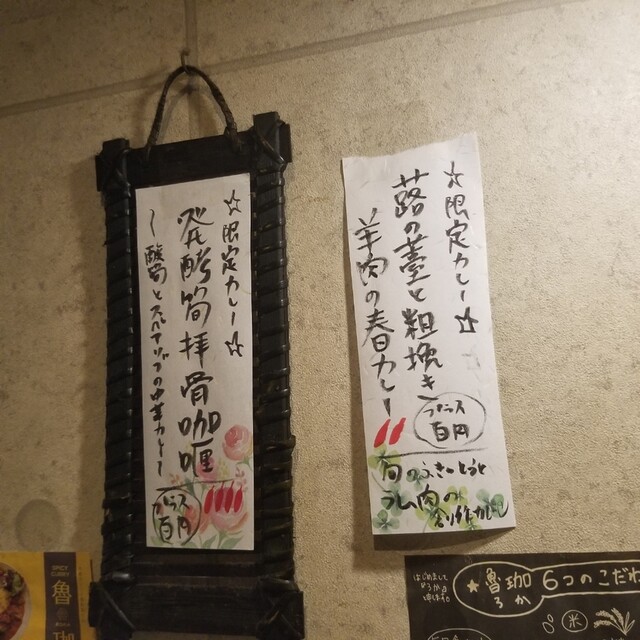 ☆限定カレー☆
蕗の薹と粗挽き
羊肉の春カレー
プラス
百円
旬のふきのとうと
ラム肉の
創作カレー
☆限定カレー☆
発酵筍排骨咖喱
〜酸筍とスペアリブの中華カレー〜
プラス
百円
SPICY
CURRY
魯珈
はじめまして
ろかと
申します。
★魯珈
ろか
6つのこだわ
米